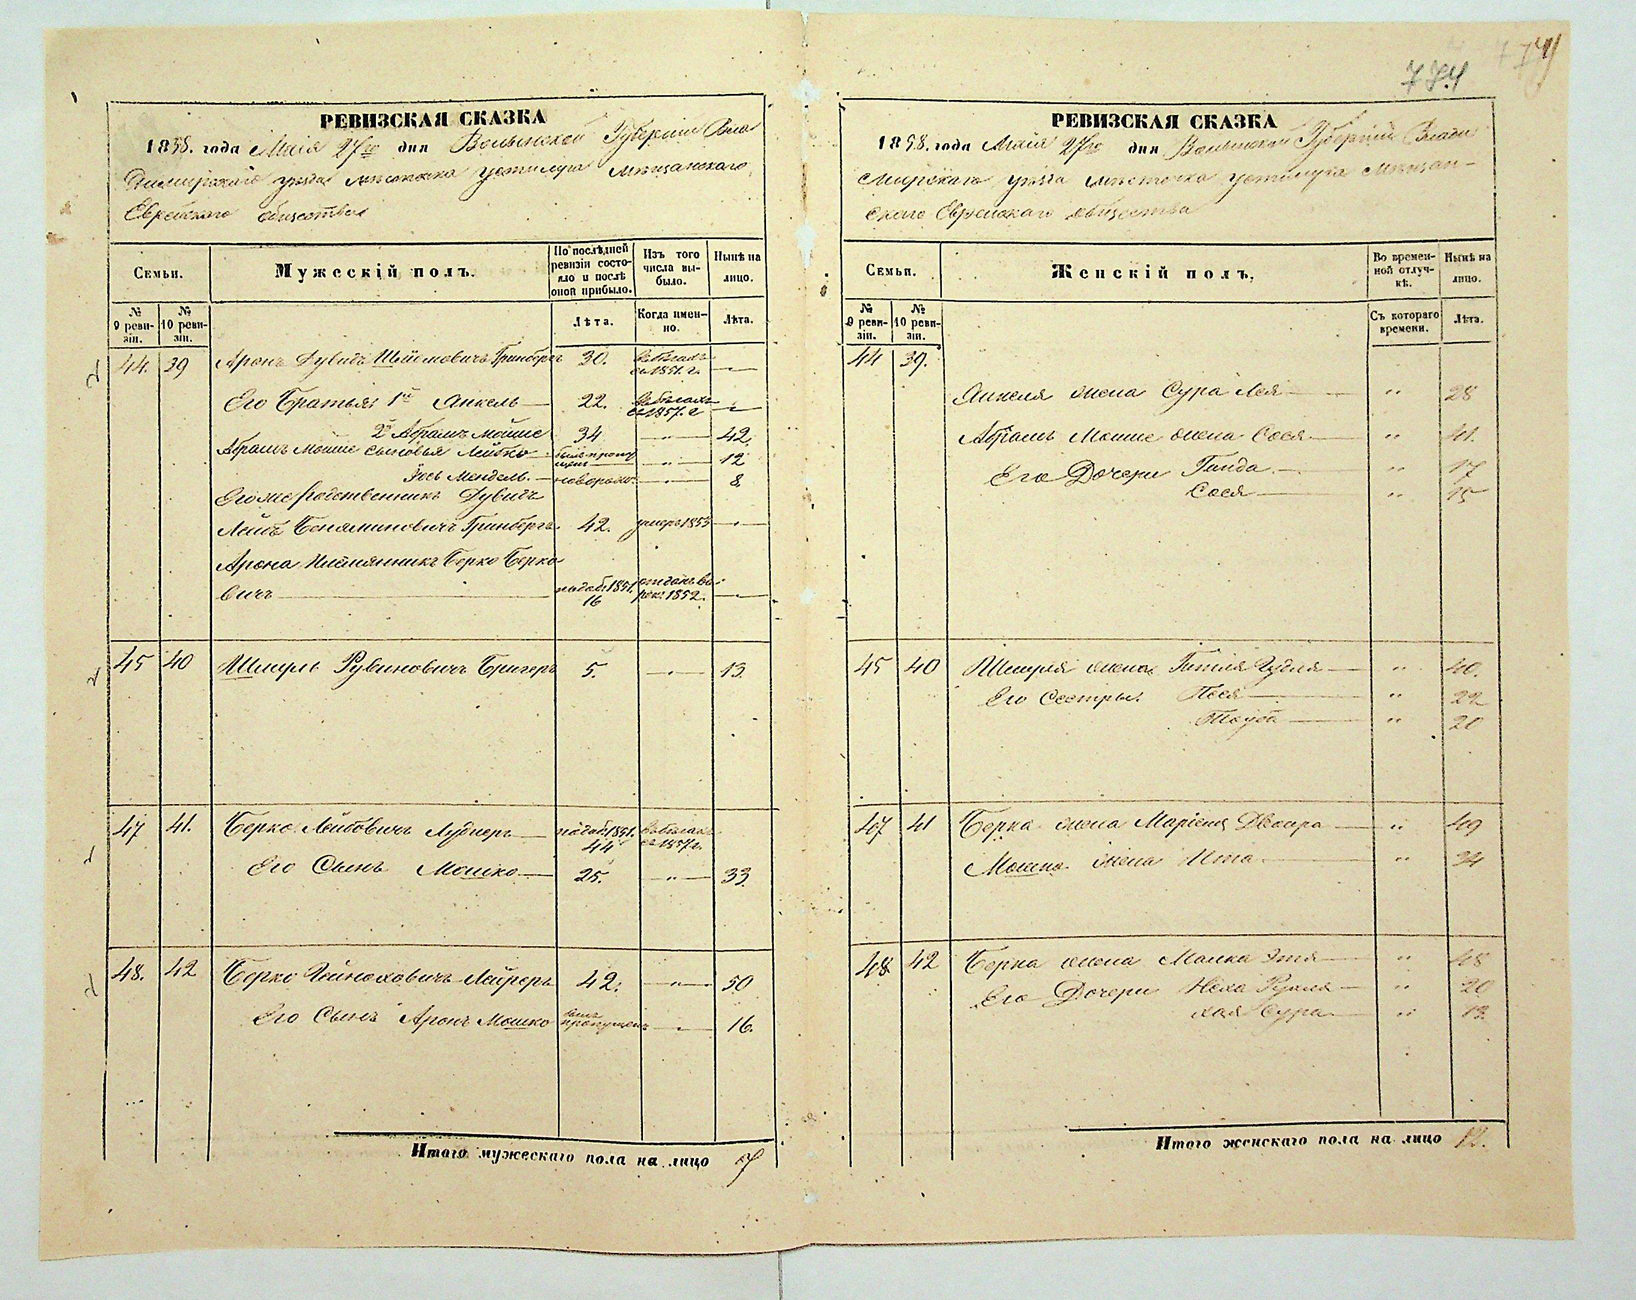 774
РЕВИЗСКАЯ СКАЗКА
1858. года Маія 27го дня Волынской Губерніи Вла
димирскаго уезда местечка Устилуга мещанскаго
Еврейскаго общества
Семьи.
Мужескій полъ.
По послѣдней ревизіи состояло и послѣ оной прибыло.
Изъ того числа выбыло.
Нынѣ на лицо.
№ 9 ревизіи.
№ 10 ревизіи.
Лѣта.
Когда именно.
Лѣта.
44. 39 Аронъ Дувидъ Шліомовичъ Гринбергъ 30. въ бегахъ съ 1851. г. —
Его Братья: 1й Янкель — 22. въ бегахъ съ 1857. г —
2й Абрамъ Мошке 34 — " — 42.
Абрамъ Мошке сыновья Лейбко — былъ пропущенъ — " — 12
Зось Мендель. — новорож. — " — 8.
Его же родственникъ Дувидъ
Лейбъ Беняминовичъ Гринбергъ. 42. умеръ 1853 — " —
Арона племянникъ Берко Берко
вичъ — 1851. 16 отданъ въ рек: 1852. —
45 40 Шмуль Рувиновичъ Бригеръ 5. — " — 13.
47 41. Берко Лейбовичъ Лудмеръ — 1851. 44 въ бегахъ съ 1857 г.
Его Сынъ Мошко — 25. — " — 33.
48. 42 Берко Хейноховичъ Лейреръ 42. — " — 50
Его Сынъ Аронъ Мошко былъ пропущенъ — " — 16.
Итого мужескаго пола на лицо 7
РЕВИЗСКАЯ СКАЗКА
1858. года Маія 27го дня Волынской Губерніи Влади
мирскаго уезда местечка Устилуга Мещан-
скаго Еврейскаго общества
Семьи.
Женскій полъ.
Во временной отлучкѣ.
Нынѣ на лицо.
№ 9 ревизіи.
№ 10 ревизіи.
Съ котораго времени.
Лѣта.
44 39.
Янкеля жена Сура Лея — " 28
Абрамъ Мошке жена Сося — " 41.
Его Дочери Гинда — " 17
Сося — " 15
45 40 Шмуля жена Гитля Гудля — " 40.
Его Сестры: Песя — " 22
Тауба — " 20
47 41 Берка жена Марьемъ Двойра — " 49
Мошка жена Ита — " 34
48 42 Берка жена Малка Этя — " 48
Его Дочери Неха Рухля — " 20
Хая Сура — " 13.
Итого женскаго пола на лицо 12.